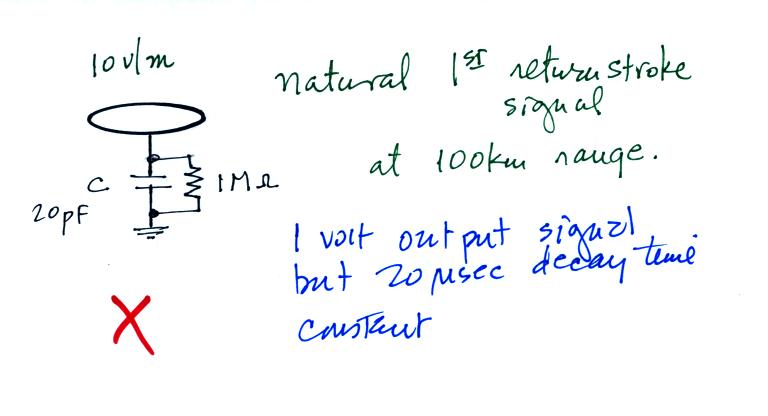 10 v/m
natural 1st return stroke
signal
at 100km range.
C
1MΩ
20pF
1 volt output signal
but 20 μsec decay time
constant
X